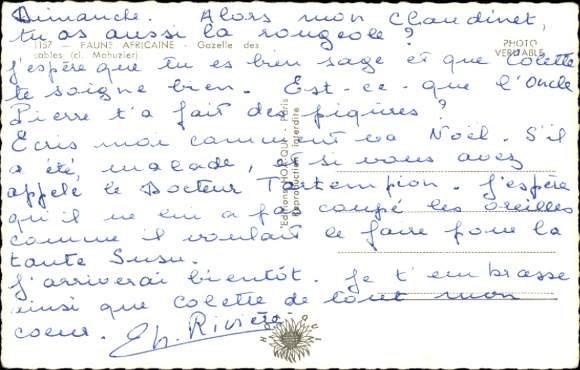 Dimanche. Alors mon Claudinet,
tu as aussi la rougeole ?
1157 - FAUNE AFRICAINE - Gazelle des
sables (cl. Mahuzier)
PHOTO
VERITABLE
j'espère que tu es bien sage et que Colette
te soigne bien. Est-ce-que l'Oncle
Pierre t'a fait des piqûres ?
Ecris moi comment va Noël. S'il
a été, malade, et si vous avez
appelé le Docteur Tartempion. J'espère
qu'il ne lui a pas coupé les oreilles
comme il voulait le faire pour la
tante Susu.
J'arriverai bientôt. Je t'embrasse
ainsi que Colette de tout mon
coeur. Ch. Rivière
"Editions HOA-QUI" - Paris
Reproduction interdite
HOA-QUI